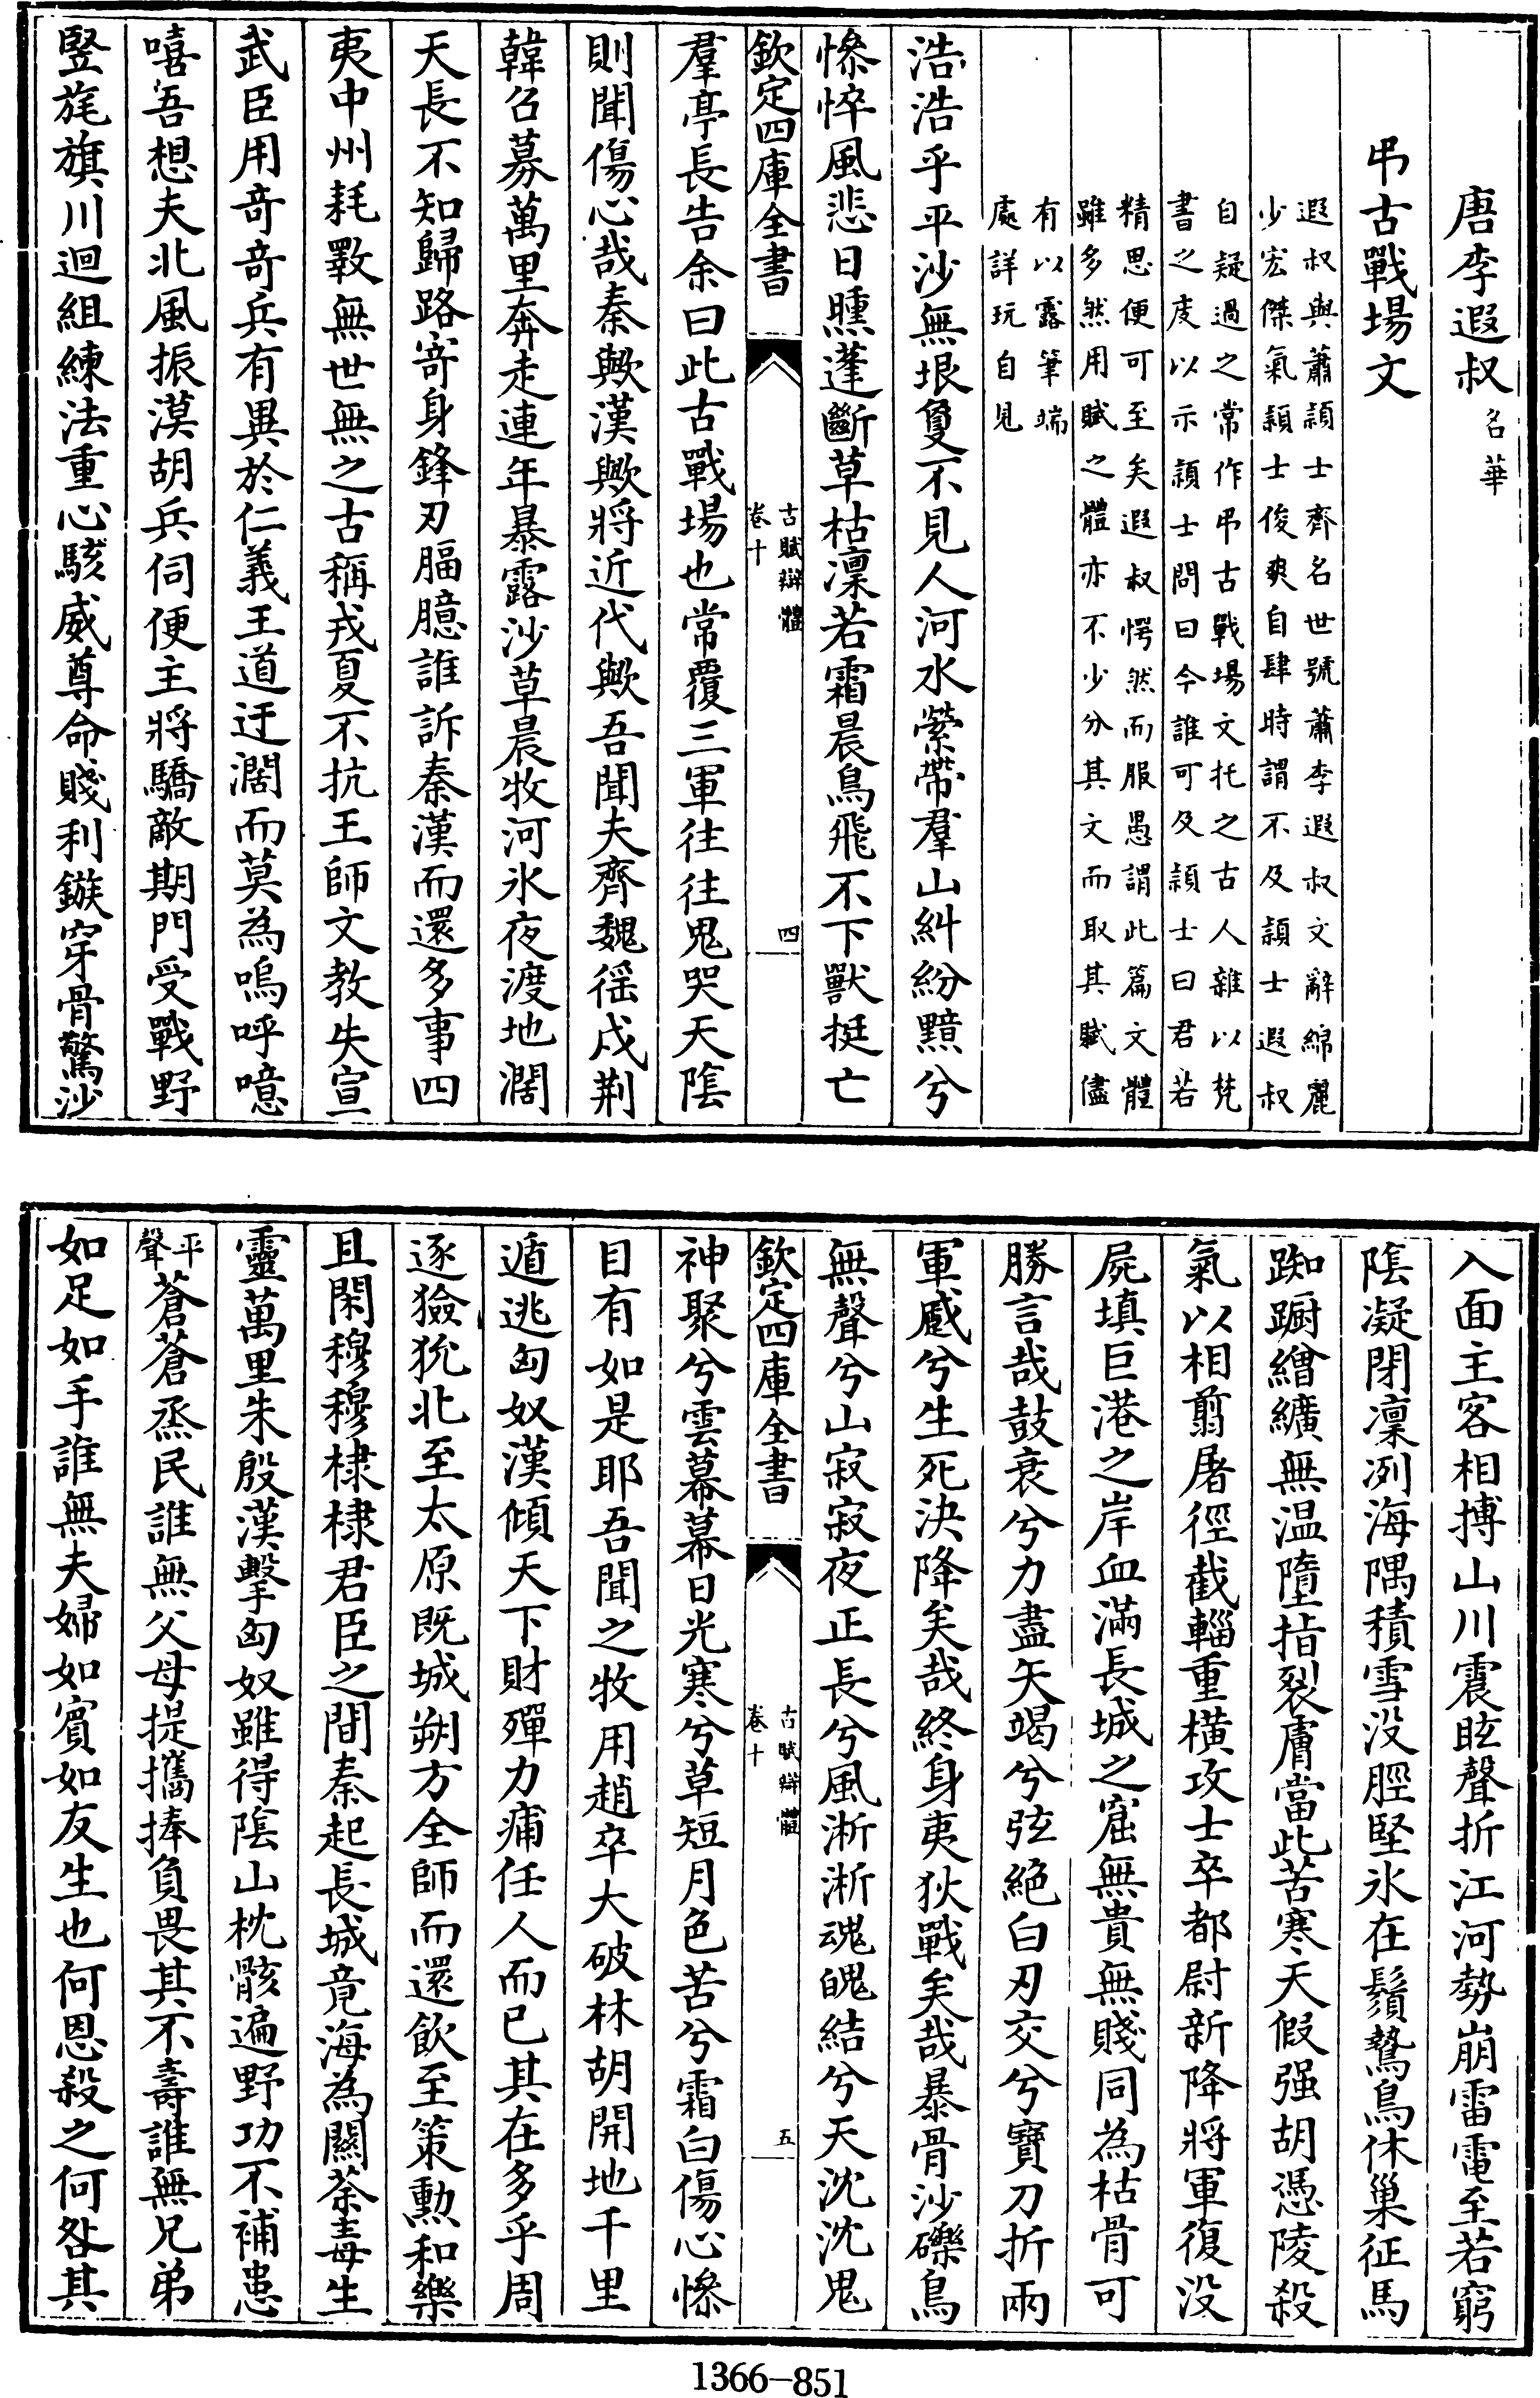 唐李遐叔名華
弔古戰場文
遐叔與蕭頴士齊名世號蕭李遐叔文辭綿麗
少宏傑氣頴士俊爽自肆時謂不及頴士遐叔
自疑過之常作弔古戰場文托之古人雜以梵
書之庋以示頴士問曰今誰可及頴士曰君若
精思便可至矣遐叔愕然而服愚謂此篇文體
雖多然用賦之體亦不少分其文而取其賦儘
有以露筆端
處詳玩自見
浩浩乎平沙無垠敻不見人河水縈帶羣山糾紛黯兮
慘悴風悲日曛蓬斷草枯凜若霜晨鳥飛不下獸挺亡
欽定四庫全書
古賦辯體
卷十
四
羣亭長告余曰此古戰場也常覆三軍往往鬼哭天陰
則聞傷心哉秦歟漢歟將近代歟吾聞夫齊魏徭戍荆
韓召募萬里奔走連年暴露沙草晨牧河氷夜渡地濶
天長不知歸路寄身鋒刃腷臆誰訴秦漢而還多事四
夷中州耗斁無世無之古稱戎夏不抗王師文教失宣
武臣用竒竒兵有異於仁義王道迂濶而莫為嗚呼噫
嘻吾想夫北風振漠胡兵伺便主將驕敵期門受戰野
竪旄旗川迴組練法重心駭威尊命賤利鏃穿骨驚沙
入面主客相搏山川震眩聲折江河勢崩雷電至若窮
陰凝閉凜冽海隅積雪没脛堅氷在鬚鷙鳥休巢征馬
踟蹰繒纊無温墮指裂膚當此苦寒天假强胡憑陵殺
氣以相翦屠徑截輜重橫攻士卒都尉新降將軍復没
屍填巨港之岸血滿長城之窟無貴無賤同為枯骨可
勝言哉鼓衰兮力盡矢竭兮弦絶白刃交兮寶刀折兩
軍蹙兮生死決降矣哉終身夷狄戰矣哉暴骨沙礫鳥
無聲兮山寂寂夜正長兮風淅淅魂魄結兮天沈沈鬼
欽定四庫全書
古賦辯體
卷十
五
神聚兮雲幕幕日光寒兮草短月色苦兮霜白傷心慘
目有如是耶吾聞之牧用趙卒大破林胡開地千里
遁逃匈奴漢傾天下財殫力痡任人而已其在多乎周
逐獫狁北至太原既城朔方全師而還飲至策勲和樂
且閑穆穆棣棣君臣之間秦起長城竟海為關荼毒生
靈萬里朱殷漢擊匈奴雖得陰山枕骸遍野功不補患
平聲蒼蒼烝民誰無父母提攜捧負畏其不壽誰無兄弟
如足如手誰無夫婦如賓如友生也何恩殺之何咎其
1366-851